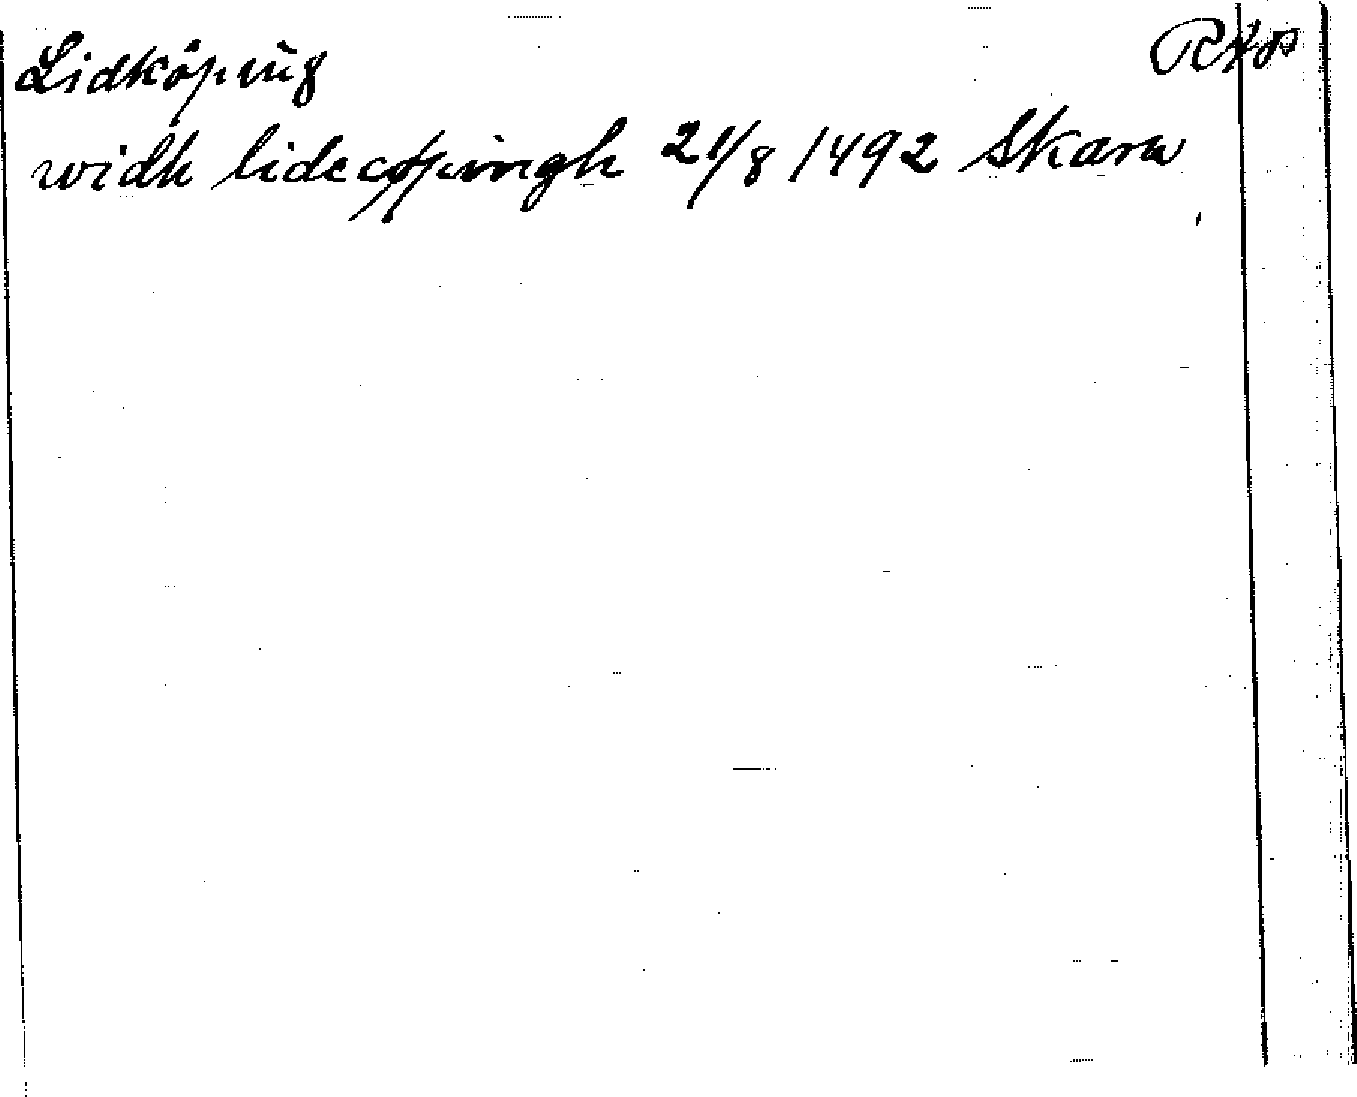 Lidköping RAp
widh lidecøpingh 21/8 1492 Skara